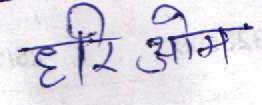 हरि ओम